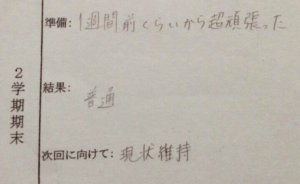 準備: 1週間前くらいから超頑張った
2学期期末
結果: 普通
次回に向けて: 現状維持